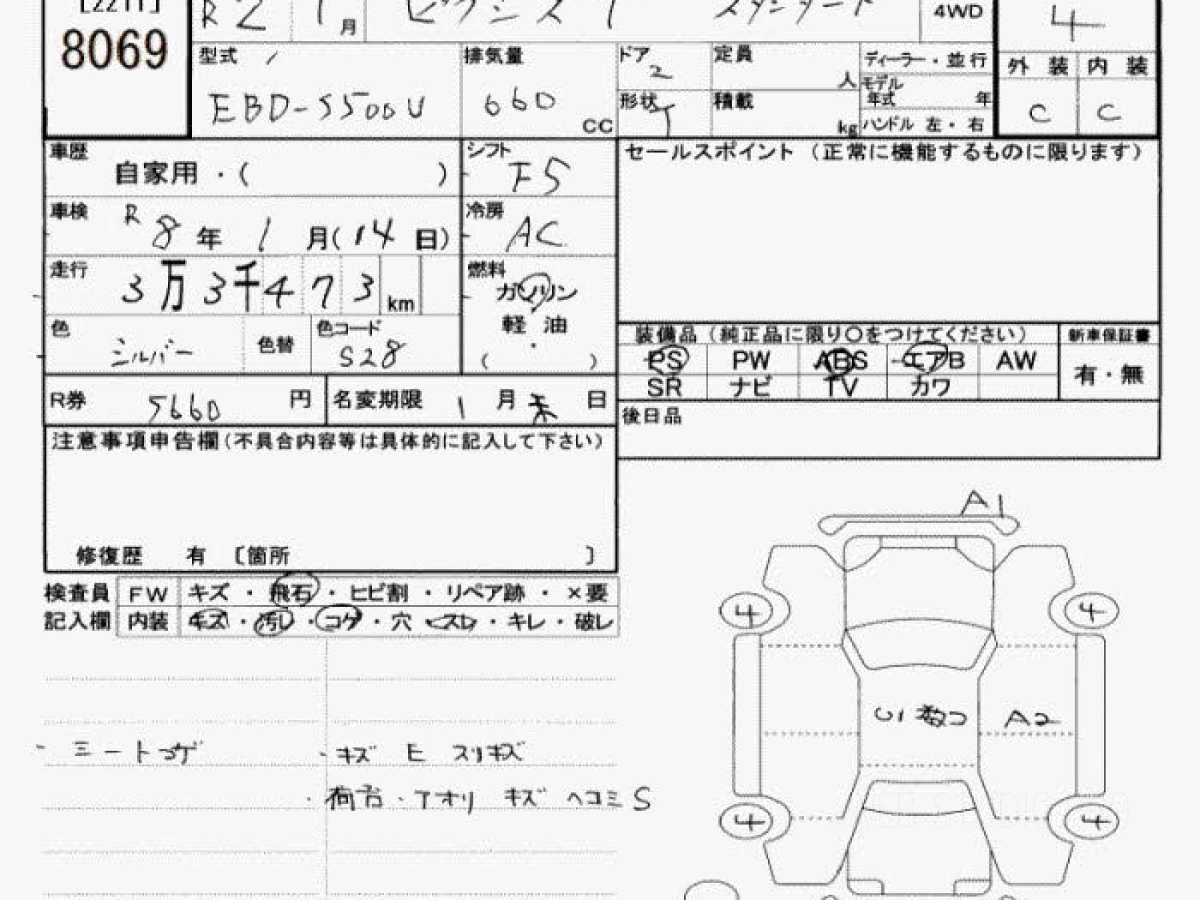 [2211]
8069
R2 1月 ピクシス T スタンダード 4WD 4
型式 EBD-S500U 排気量 660 CC
ドア 2 定員 人 ディーラー・並行
モデル年式 年
形状 T 積載 kg ハンドル 左・右
外装 内装
C C
車歴 自家用・( )
シフト F5
車検 R8年1月(14日)
冷房 AC
走行 3万3千473 km
燃料 ガソリン
軽油
( )
色 シルバー 色替 色コード S28
R券 5660 円 名変期限 1月末日
セールスポイント (正常に機能するものに限ります)
装備品 (純正品に限り〇をつけてください) 新車保証書
PS PW ABS エアB AW 有・無
SR ナビ TV カワ
後日品
注意事項申告欄(不具合内容等は具体的に記入して下さい)
修復歴 有 〔箇所 〕
検査員 FW キズ・飛石・ヒビ割・リペア跡・×要
記入欄 内装 キズ・汚レ・コゲ・穴・スレ・キレ・破レ
シートコゲ
・キズ E スリキズ
・荷台・アオリ キズ ヘコミ S
A1
4 4
U1 数コ A2
4 4